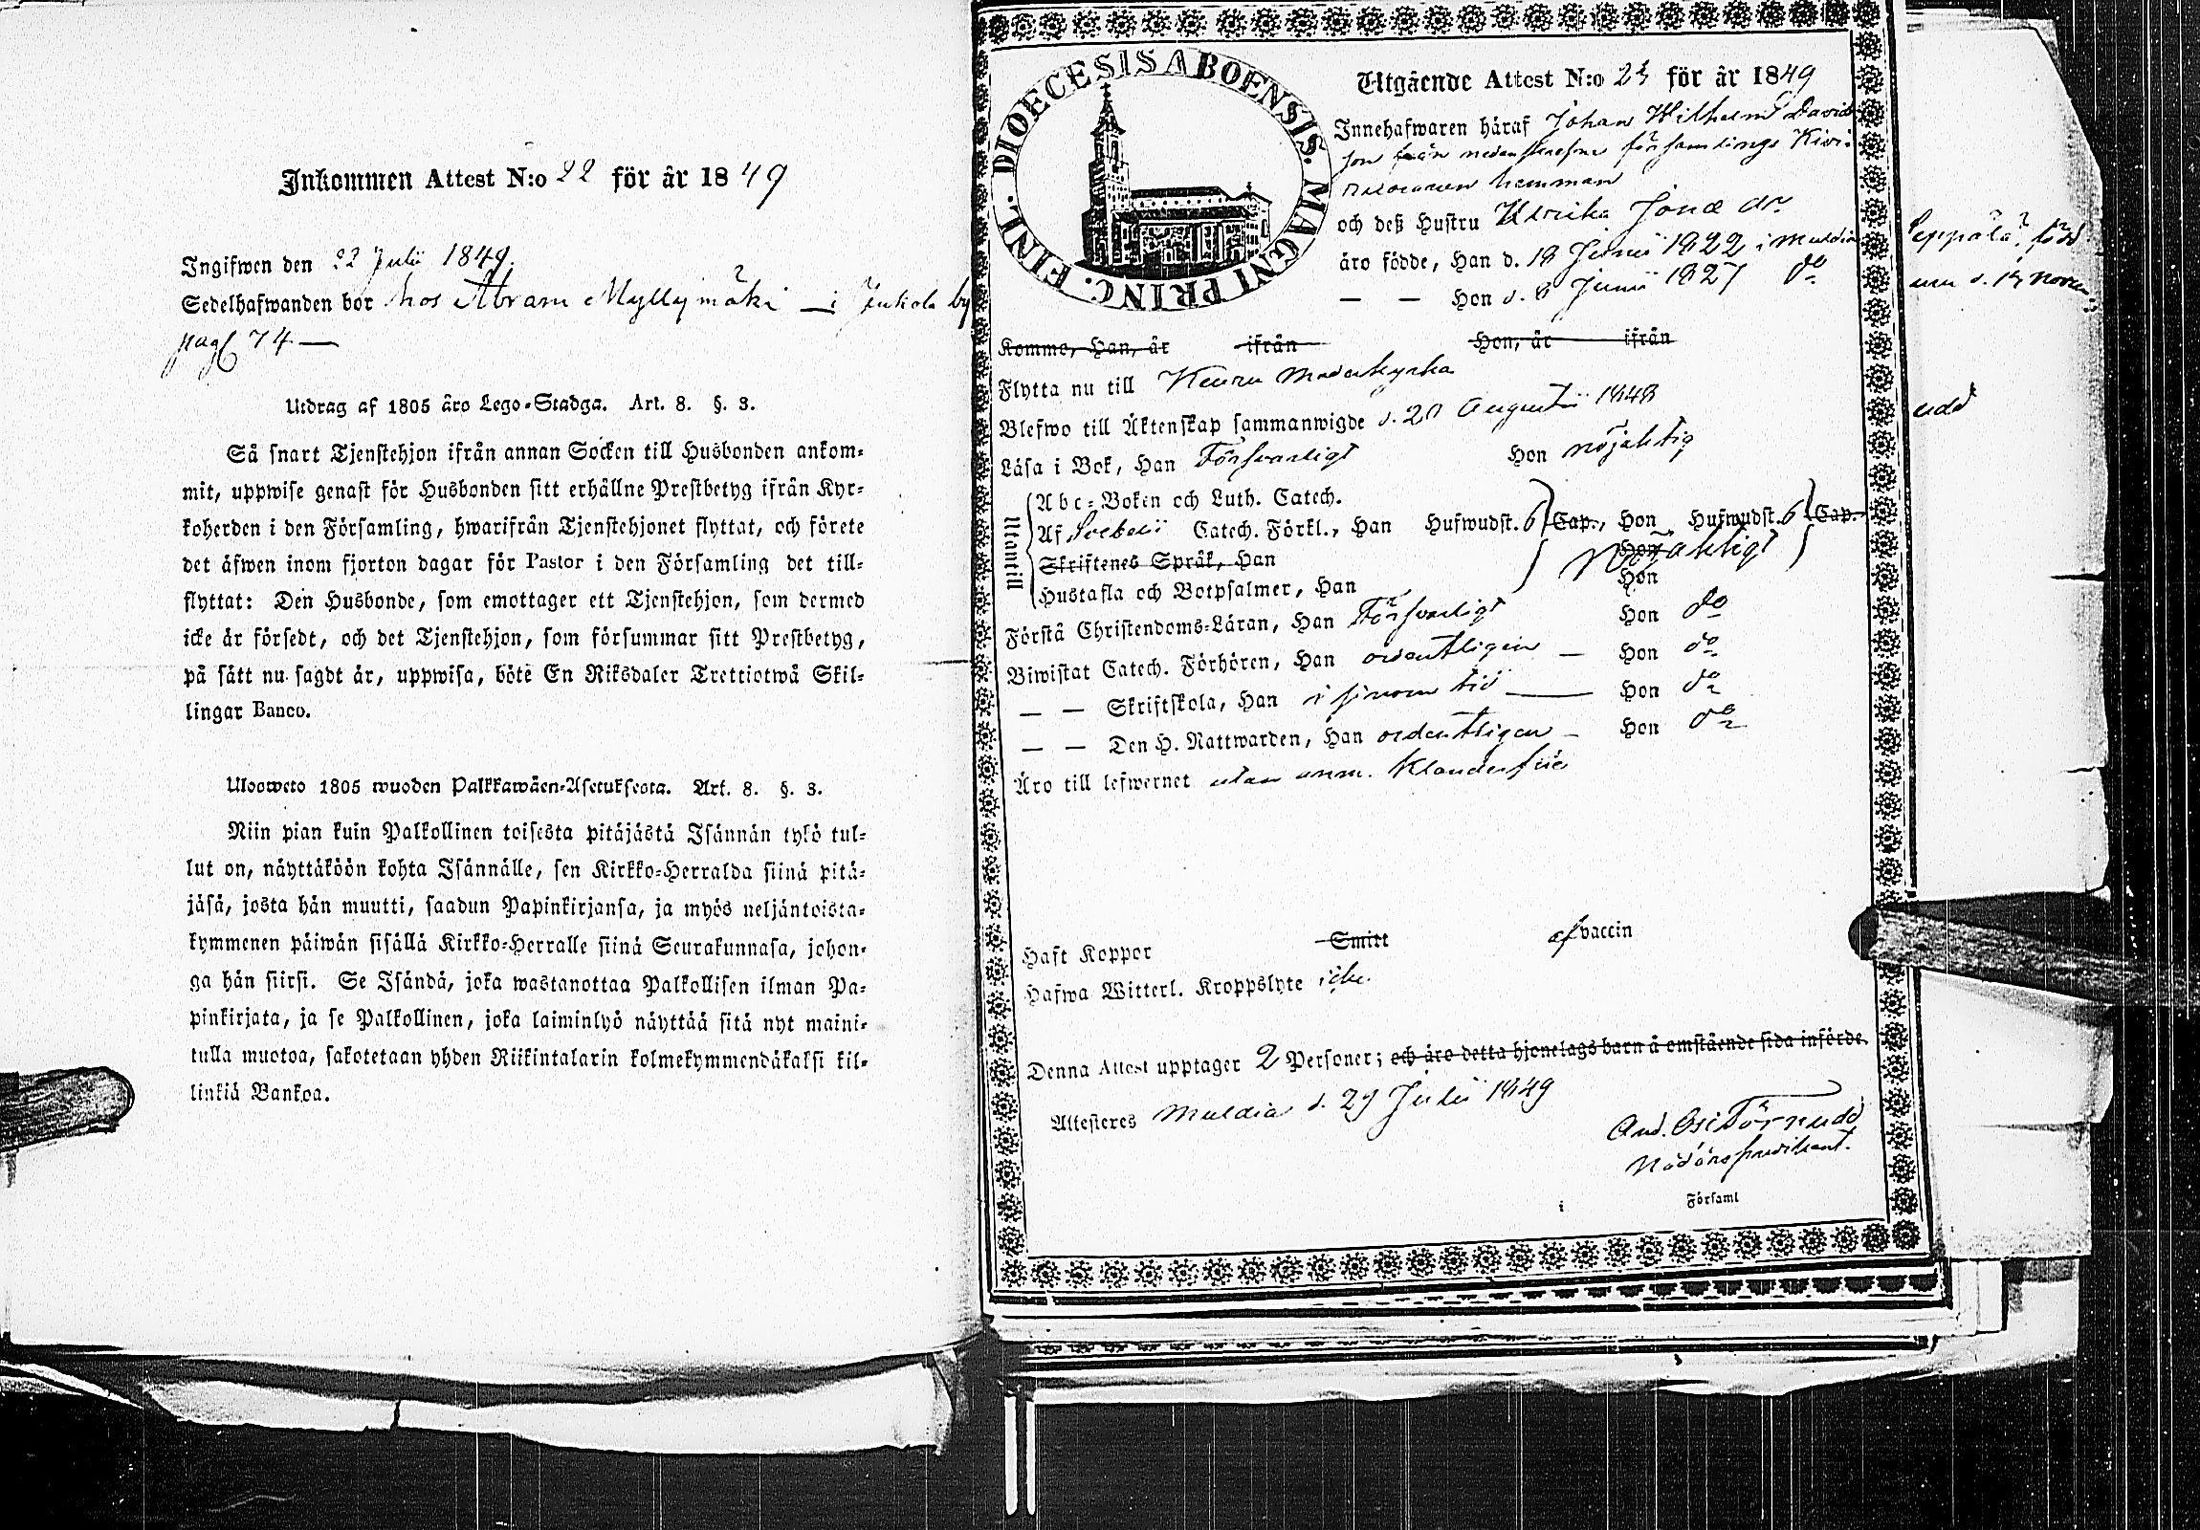 Inkommen Attest N:o 22 för år 1849
Ingifwen den 22 Julii 1849.
Sedelhafwanden bor hos Abram Myllymäki — i Jukola by
pag 74. —
Utdrag af 1805 åro Lego-Stadga. Art. 8. §. 3.
Så snart Tjenstehjon ifrån annan Socken till Husbonden ankom-
mit, uppwise genast för Husbonden sitt erhållne Prestbetyg ifrån Kyr-
koherden i den Församling, hwarifrån Tjenstehjonet flyttat, och förete
det äfwen inom fjorton dagar för Pastor i den Församling det till-
flyttat: Den Husbonde, som emottager ett Tjenstehjon, som dermed
icke är försedt, och det Tjenstehjon, som försummar sitt Prestbetyg,
på sätt nu sagdt är, uppwisa, böte En Riksdaler Trettiotwå Skil-
lingar Banco.
Ulosweto 1805 wuoden Palkkawäen-Asetuksesta. Art. 8. §. 3.
Niin pian kuin Palkollinen toisesta pitäjästä Isännän tykö tul-
lut on, näyttäköön kohta Isännälle, sen Kirkko-Herralda siinä pitä-
jäsä, josta hän muutti, saadun Papinkirjansa, ja myös neljäntoista-
kymmenen päiwän sisällä Kirkko-Herralle siinä Seurakunnasa, johon-
ga hän siirsi. Se Isändä, joka wastanottaa Palkollisen ilman Pa-
pinkirjata, ja se Palkollinen, joka laiminlyö näyttää sitä nyt maini-
tulla muotoa, sakotetaan yhden Riikintalarin kolmekymmendäkaksi kil-
linkiä Bankoa.
DIOECESIS ABOENSIS. MAGNI PRINC. FINL.
Utgående Attest N:o 23 för år 1849
Innehafwaren häraf Johan Wilhelm Davids
son från nedanskrefne församlings Kivi-
hemman
och deß Hustru Ulrika Jonæ dr.
äro födde, Han d. 18 Junii 1822 i Muldia
— — Hon d. 6 Junii 1827 do
Komme, Han, år ifrån Hon, år ifrån
Flytta nu till Keuru Moderkyrka
Blefwo till Äktenskap sammanwigde d. 20 Augusti 1848
Läsa i Bok, Han Försvarligt Hon nöjaktig
Utantill
Abc-Boken och Luth. Catech.
Af Svebelii Catech. Förkl., Han Hufwudst. 6 Cap., Hon Hufwudst. 6 Cap.
Skriftenes Språk, Han Hon Nöjaktigt
Hustafla och Botpsalmer, Han Hon
Förstå Christendoms-Läran, Han Försvarligt Hon do
Biwistat Catech. Förhören, Han ordentligen — Hon do
— — Skriftskola, Han i sinom tid — Hon do
— — Den H. Nattwarden, Han ordentligen — Hon do
Äro till lefwernet utan anm. Klanderfrie
Haft Koppor Smitt af vaccin
Hafwa Witterl. Kroppslyte icke.
Denna Attest upptager 2 Personer; och äro detta hjonelags barn å omstående sida införde.
Attesteres Muldia d. 29 Julii 1849
And. Törnudd
Nådårspredikant.
Församl
i
Seppälä, född
d. 19 novem
udd